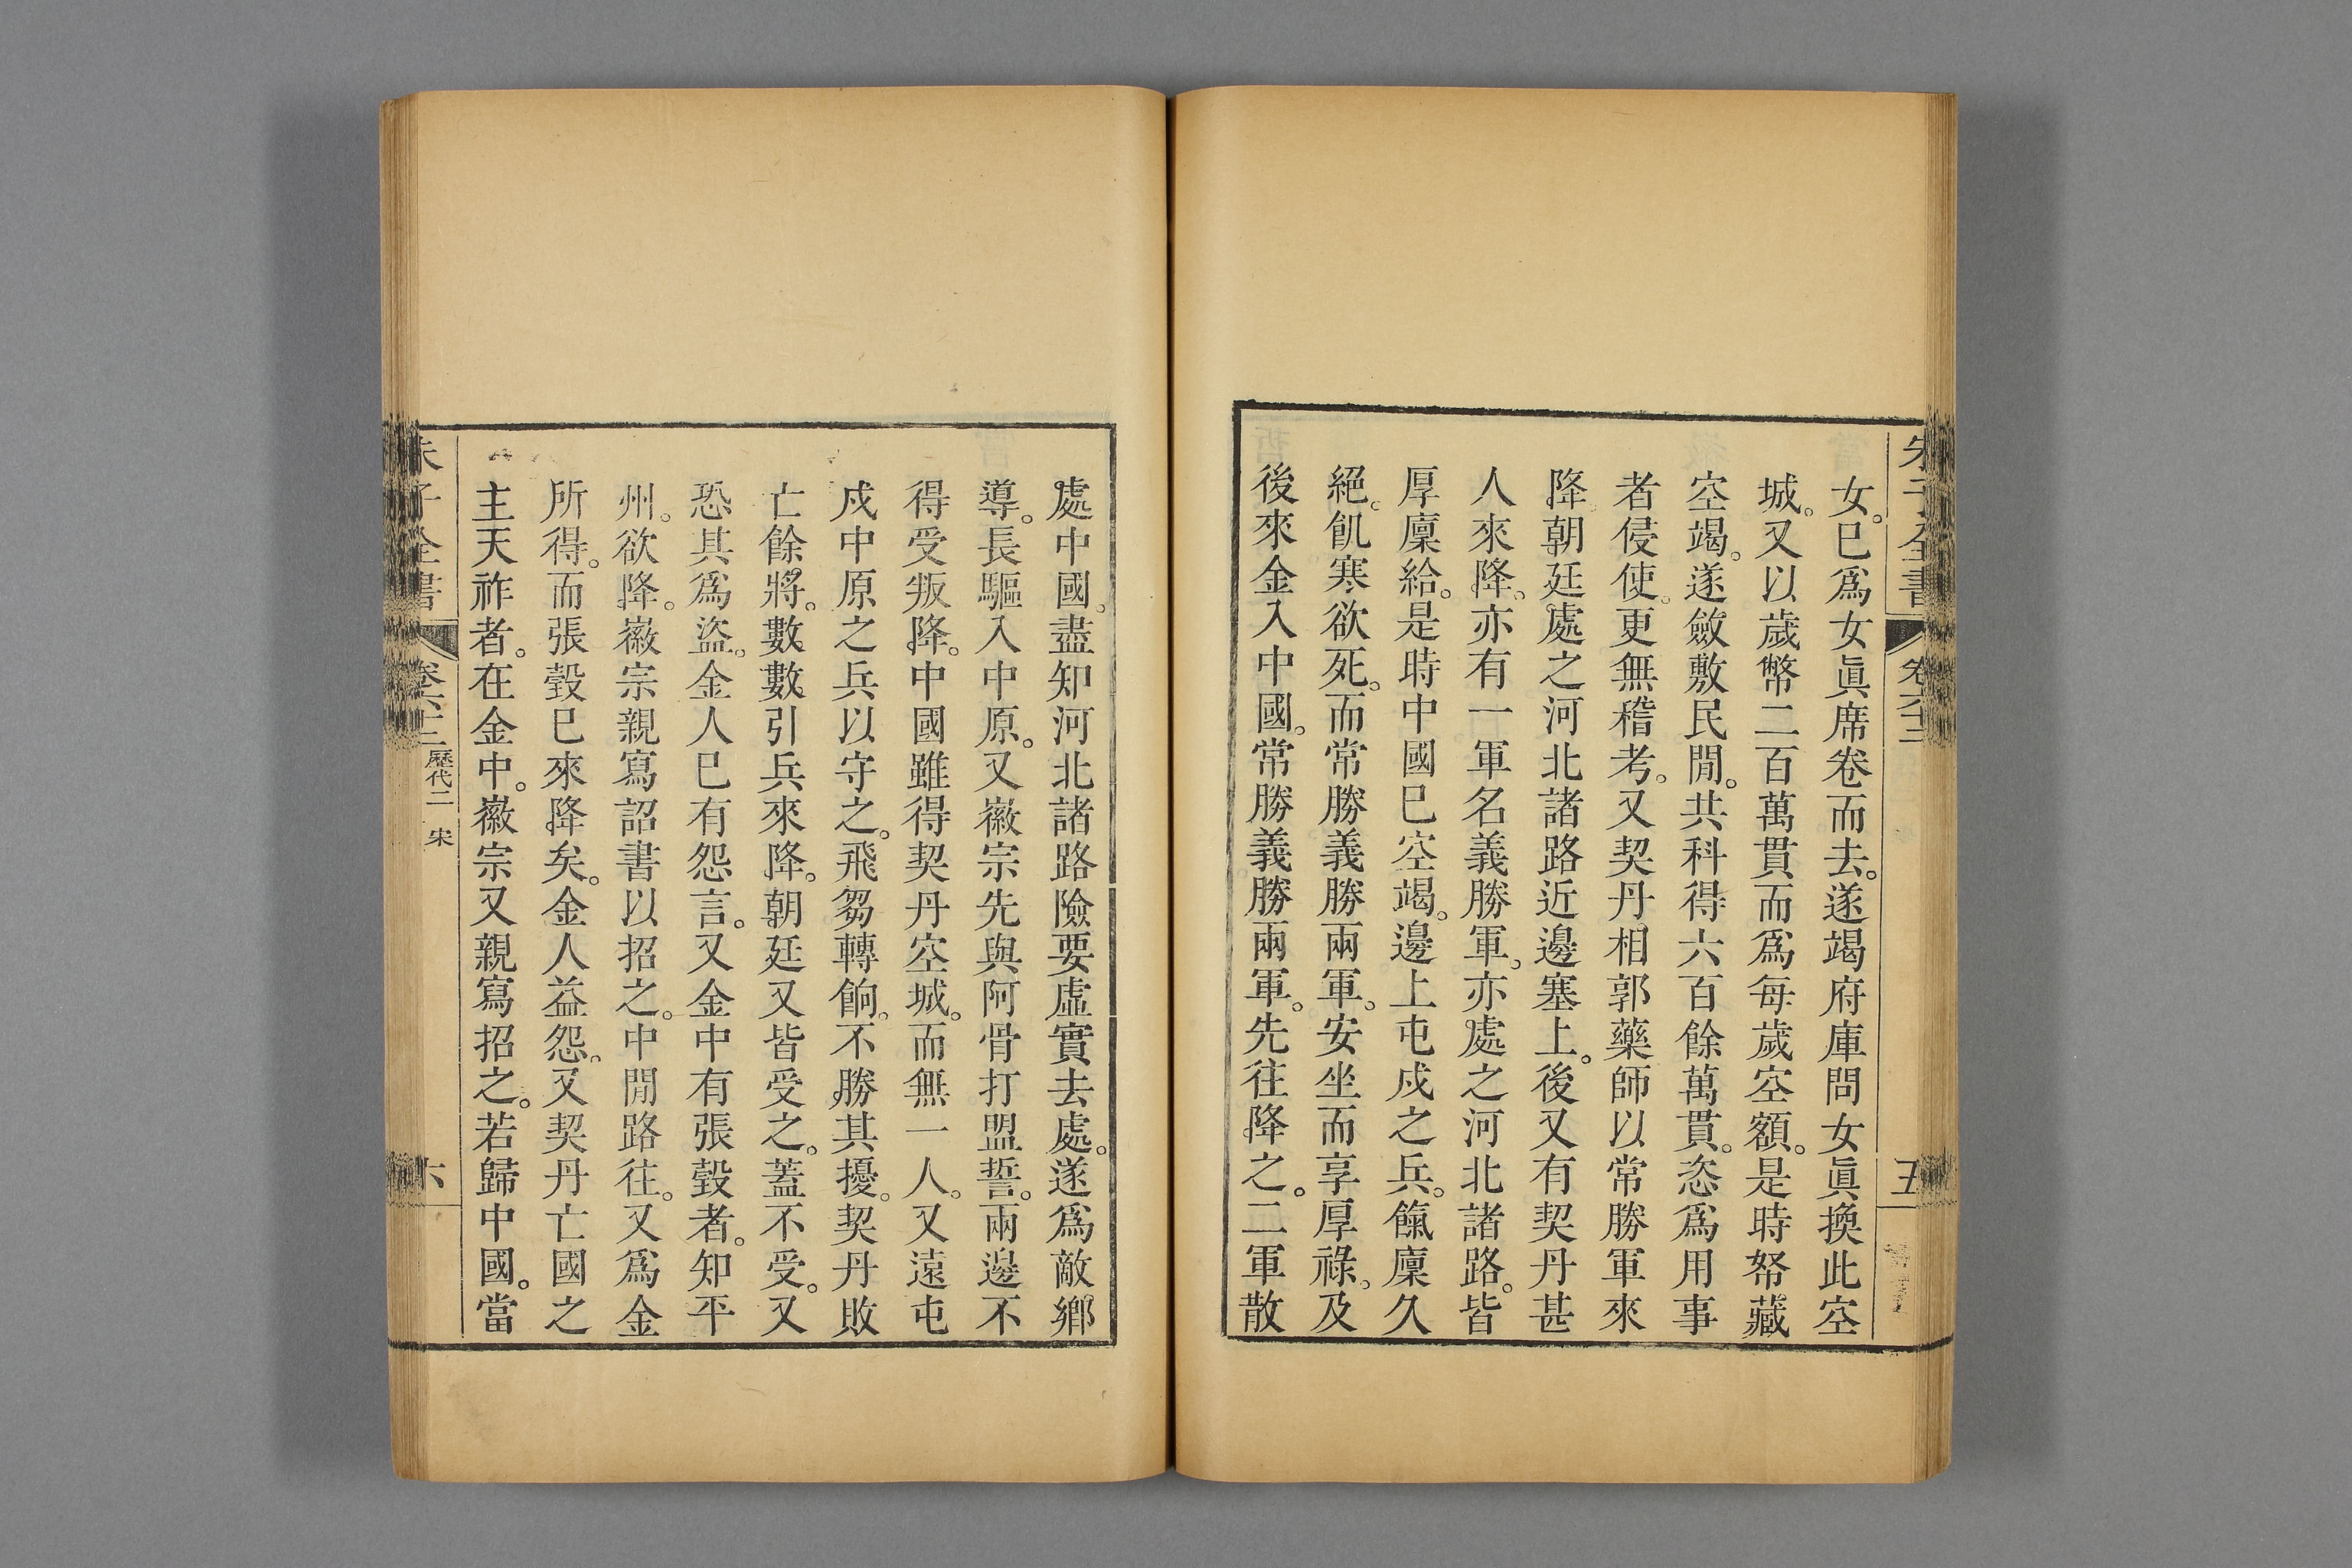 朱子全書
卷六十三
五
女。已爲女眞席卷而去。遂竭府庫問女眞換此空
城。又以歲幣二百萬貫而爲每歲空額。是時帑藏
空竭。遂斂敷民閒。共科得六百餘萬貫。恣爲用事
者侵使。更無稽考。又契丹相郭藥師以常勝軍來
降。朝廷處之河北諸路近邊塞上。後又有契丹甚
人來降。亦有一軍名義勝軍。亦處之河北諸路。皆
厚廩給。是時中國已空竭。邊上屯戍之兵。餼廩久
絕。飢寒欲死。而常勝義勝兩軍。安坐而享厚祿。及
後來金入中國。常勝義勝兩軍。先往降之。二軍散
處中國。盡知河北諸路險要虛實去處。遂爲敵鄉
導。長驅入中原。又徽宗先與阿骨打盟誓。兩邊不
得受叛降。中國雖得契丹空城。而無一人。又遠屯
戍中原之兵以守之。飛芻轉餉。不勝其擾。契丹敗
亡餘將。數數引兵來降。朝廷又皆受之。蓋不受。又
恐其爲盜。金人已有怨言。又金中有張瑴者。知平
州。欲降。徽宗親寫詔書以招之。中閒路往。又爲金
所得。而張瑴已來降矣。金人益怨。又契丹亡國之
主天祚者。在金中。徽宗又親寫招之。若歸中國。當
朱子全書
卷六十三
歷代二 宋
六